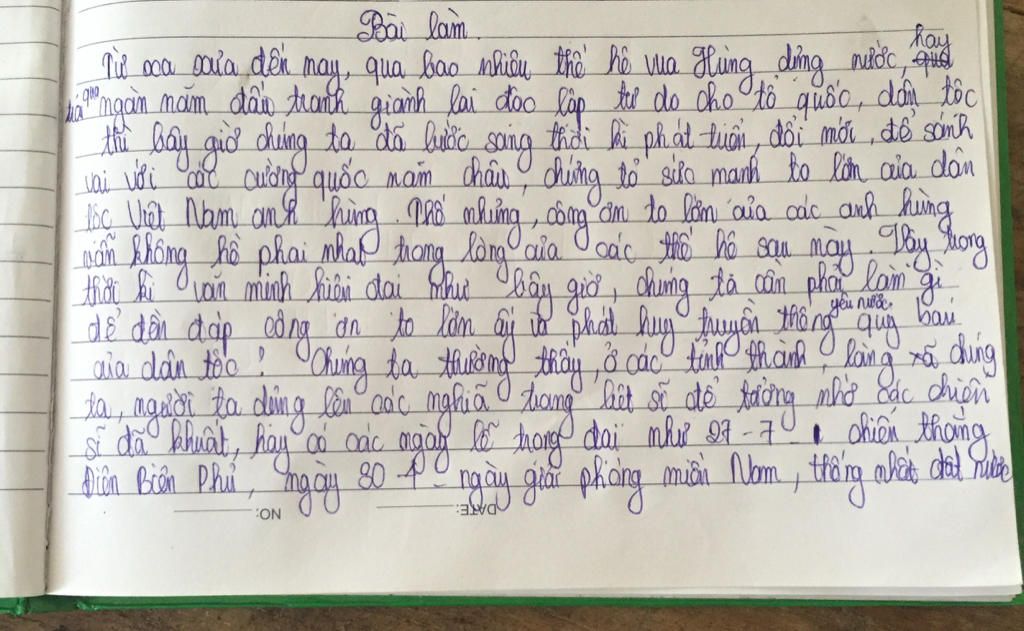 Bài làm.
Từ xa xưa đến nay, qua bao nhiêu thế hệ vua Hùng dựng nước, hay
qua ngàn năm đấu tranh giành lại độc lập tự do cho tổ quốc, dân tộc
thì bây giờ chúng ta đã bước sang thời kì phát triển, đổi mới, để sánh
vai với các cường quốc năm châu, chứng tỏ sức mạnh to lớn của dân
tộc Việt Nam anh hùng. Thế nhưng, công ơn to lớn của các anh hùng
vẫn không hề phai nhạt trong lòng của các thế hệ sau này. Vậy trong
thời kì văn minh hiện đại như bây giờ, chúng ta cần phải làm gì
để đền đáp công ơn to lớn ấy và phát huy truyền thống yêu nước quý báu
của dân tộc? Chúng ta thường thấy, ở các tỉnh thành, làng xã chúng
ta, người ta dựng lên các nghĩa trang liệt sĩ để tưởng nhớ các chiến
sĩ đã khuất, hay có các ngày lễ trọng đại như 27-7 chiến thắng
Điện Biên Phủ, ngày 30-4- ngày giải phóng miền Nam, thống nhất đất nước
DATE: NO: